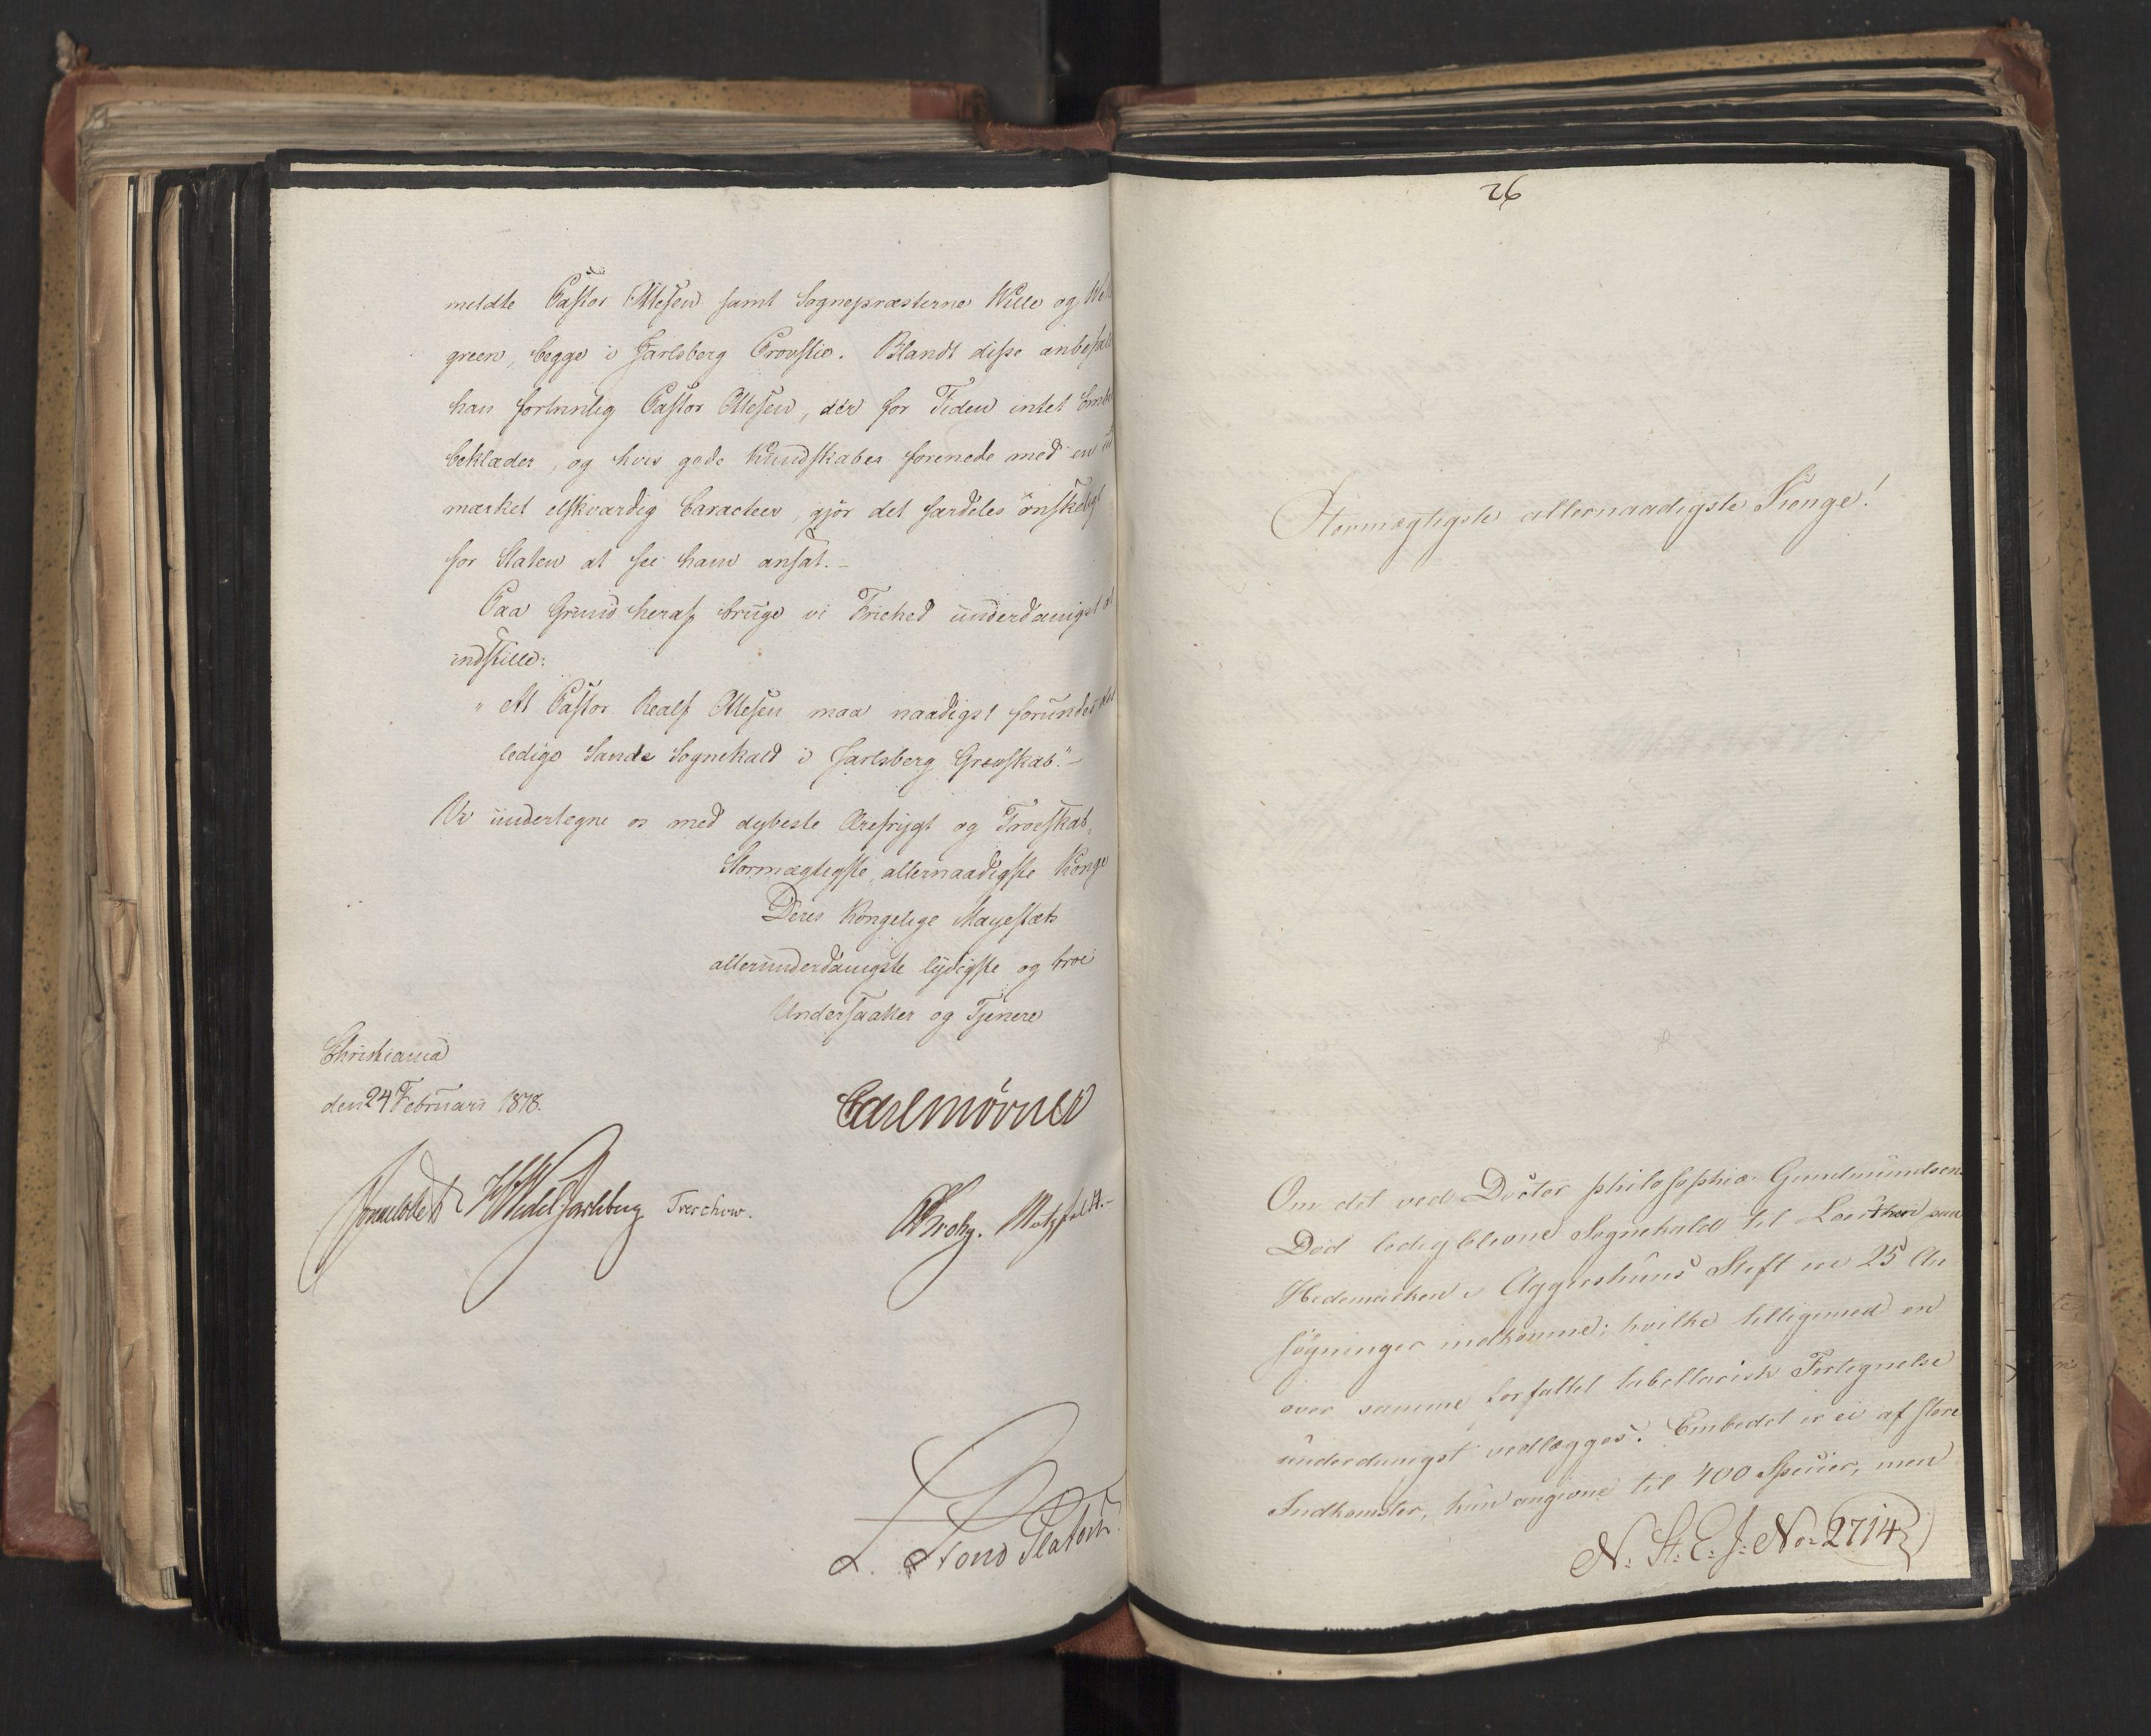 meldte Pastor Ottesen samt Sognepræsterne Wille og
green, begge i Jarlsberg Provstie. Blandt disse anbefale
han fortrinlig Pastor Ottesen, der for Tiden intet Embe
beklæder, og hvis gode Kundskaber forenede med en ud
mærket elskværdig Caracteer, gjör det særdeles önskeligt
for Staten at see ham ansat. –
Paa Grund heraf bruge vi Friehed underdanigst at
indstille:
" At Pastor Realf Ottesen maa naadigst forundes det
ledige Sande Sognekald i Jarlsberg Grevskab." –
Vi undertegne os med dybeste Ærefrygt og Troeskab,
Stormægtigste, allernaadigste Konge
Deres Kongelige Mayestæts
allerunderdanigste lydigste og troe
Undersaatter og Tjenere
Christiania
den 24 Februari 1818.
Carl Mörner
Sommerhielm Wedel Jarlsberg Treschow.
Krohg. Motzfeldt. –
L. Stoud Platou
26
Stormægtigste allernaadigste Konge!
Om det ved Doctor philosophiæ Gundmundsens
Död ledigblevne Sognekald til Leuthen paa
Hedemarken i Aggershuus Stift ere 25 An
sögninger indkomne; hvilke tilligemed en
over samme forfattet tabellarisk Fortegnelse
underdanigst vedlægges. Embedet er ei af store
Indkomster, kun angivne til 400 Specier, men
N: St: E: J: No 2714